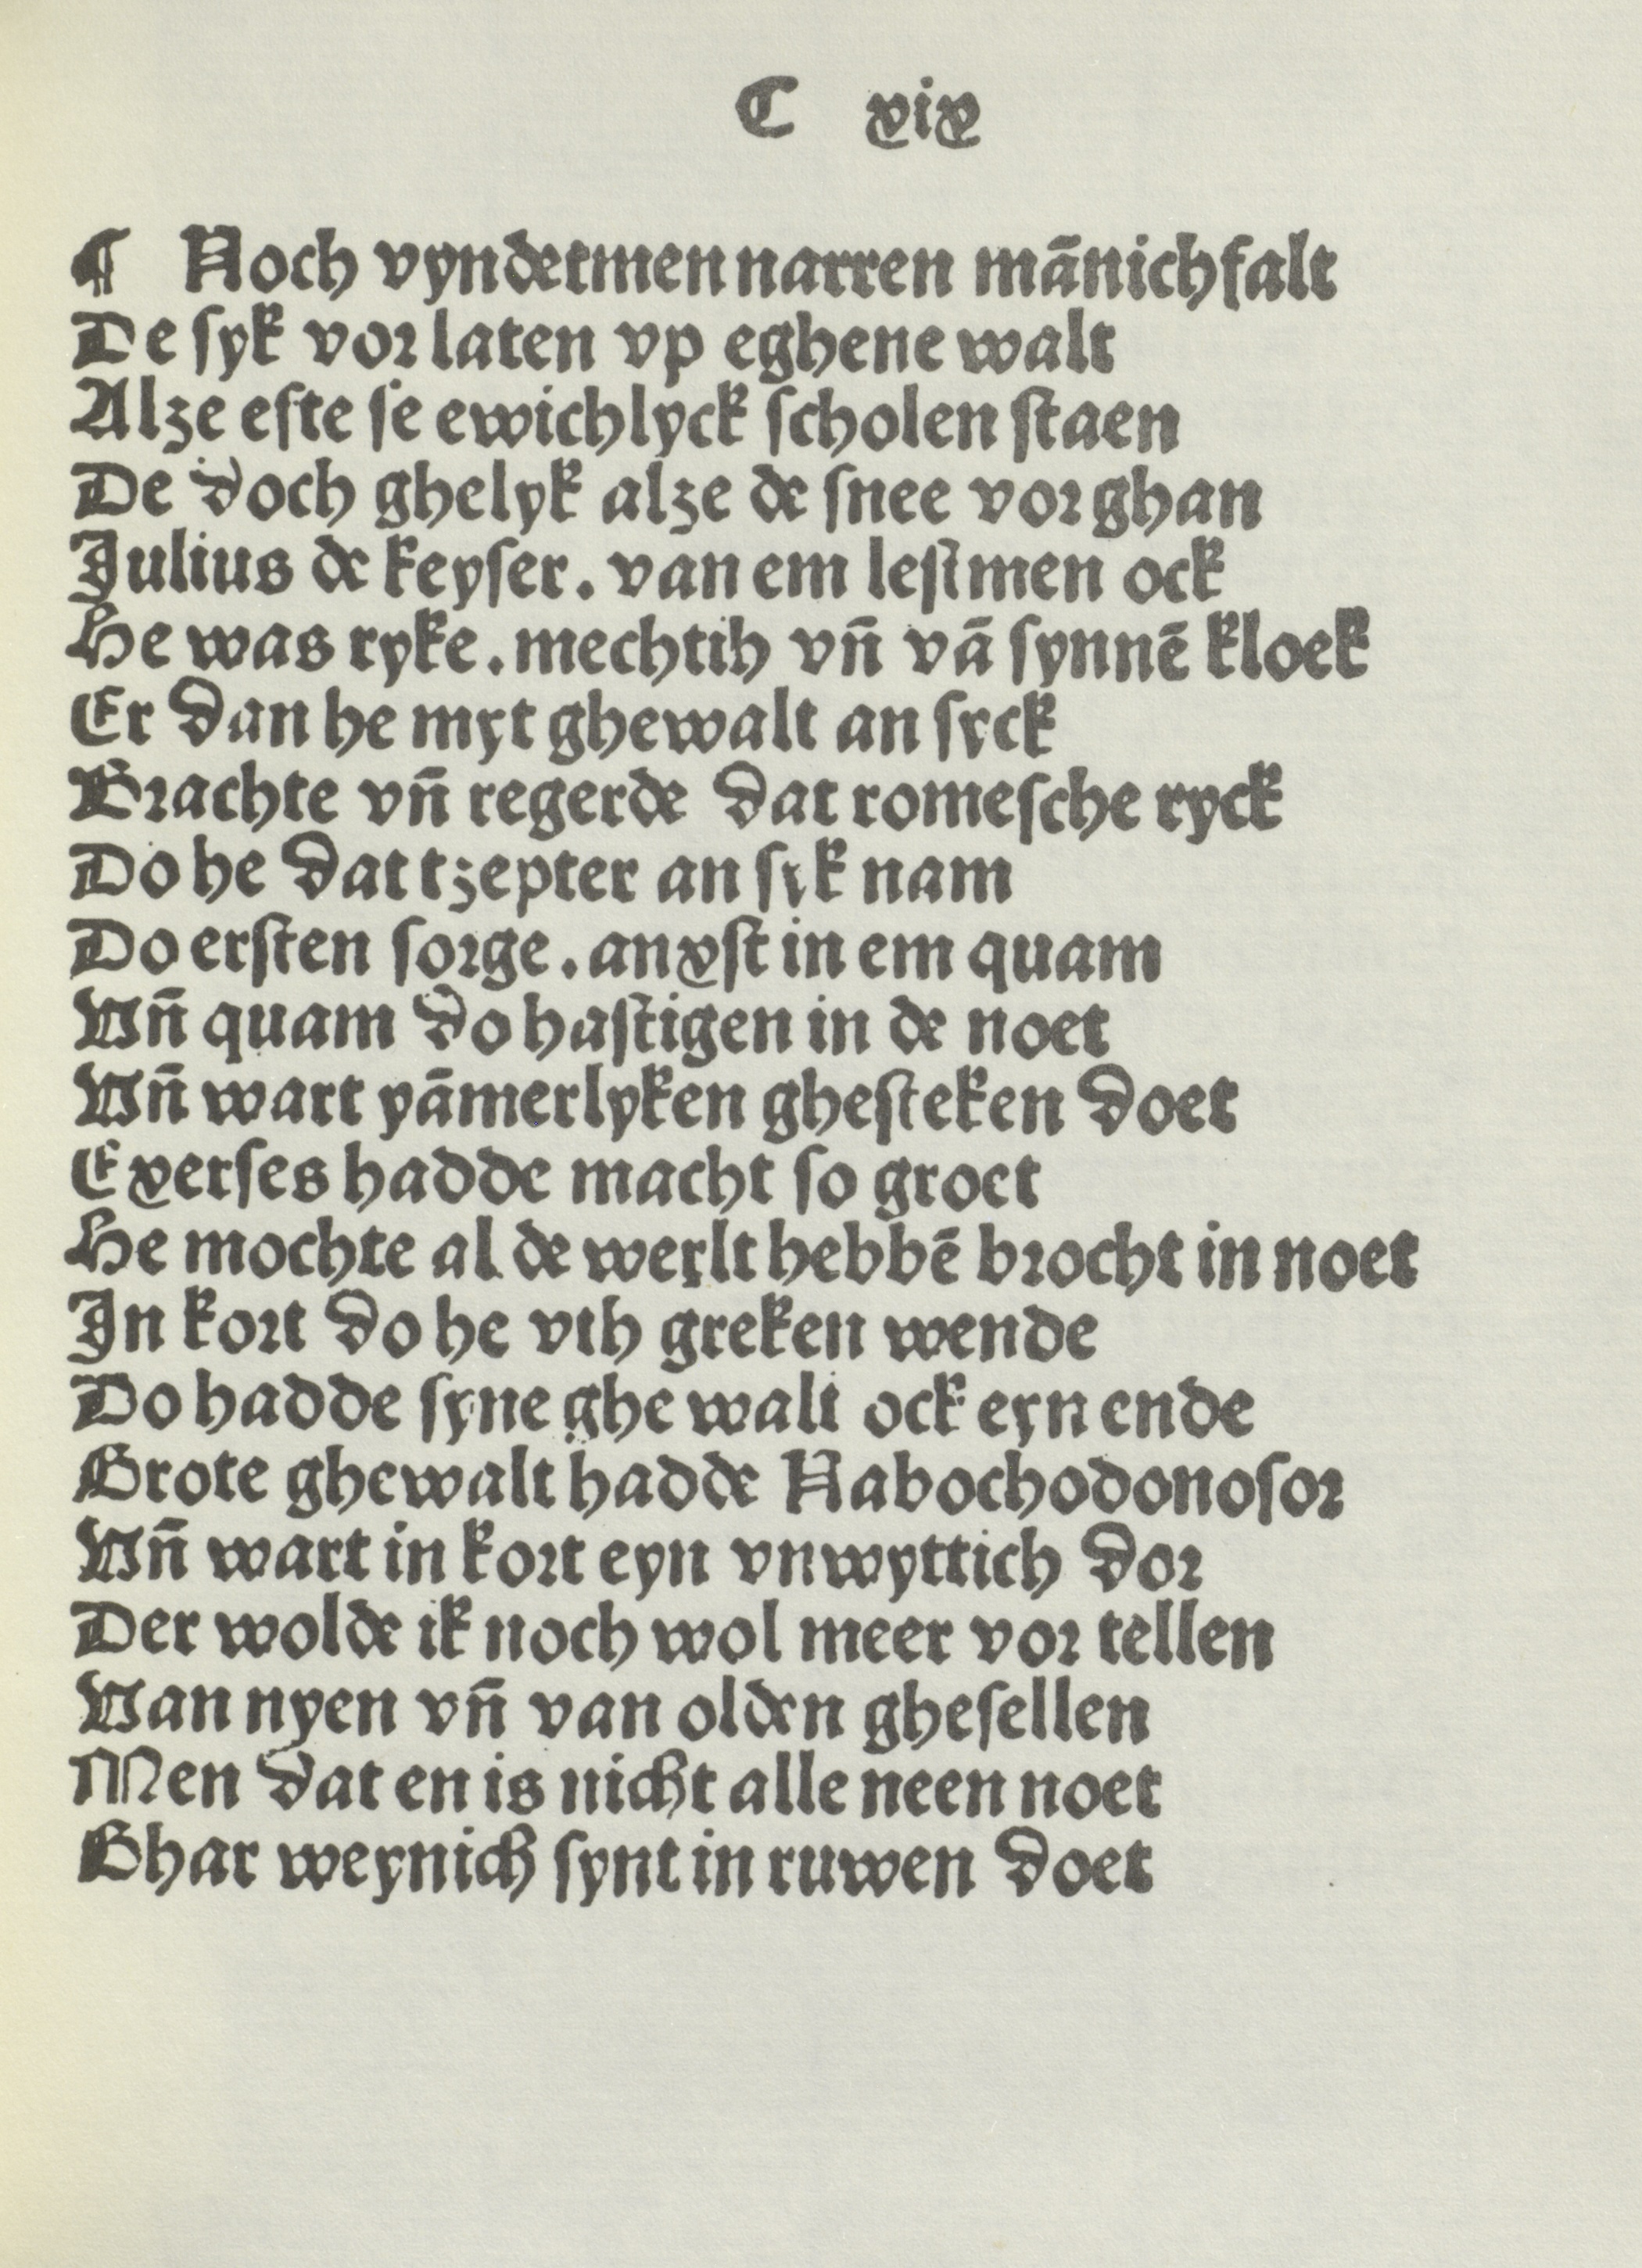 C xix
¶ Noch vyndetmen narren mānichfalt
De ſyk vor laten vp eghene walt
Alze efte ſe ewichlyck ſcholen ſtaen
De doch ghelyk alze de ſnee vor ghan
Julius de keyſer. van em leſtmen ock
He was ryke. mechtih vn̄ vā ſynnē kloek
Er dan he myt ghewalt an ſyck
Brachte vn̄ regerde dat romeſche ryck
Do he dat tzepter an ſyk nam
Do erſten ſorge. anxſt in em quam
Vn̄ quam do haſtigen in de noet
Vn̄ wart yāmerlyken gheſteken doet
Exerſes hadde macht so groet
He mochte al de werlt hebbē brocht in noet
In kort do he vth greken wende
Do hadde ſyne ghe walt ock eyn ende
Grote ghewalt hadde Nabochodonoſor
Vn̄ wart in kort eyn vnwyttich dor
Der wolde ik noch wol meer vor tellen
Van nyen vn̄ van olden gheſellen
Men dat en is nicht alle neen noet
Ghar weynich ſynt in ruwen doet